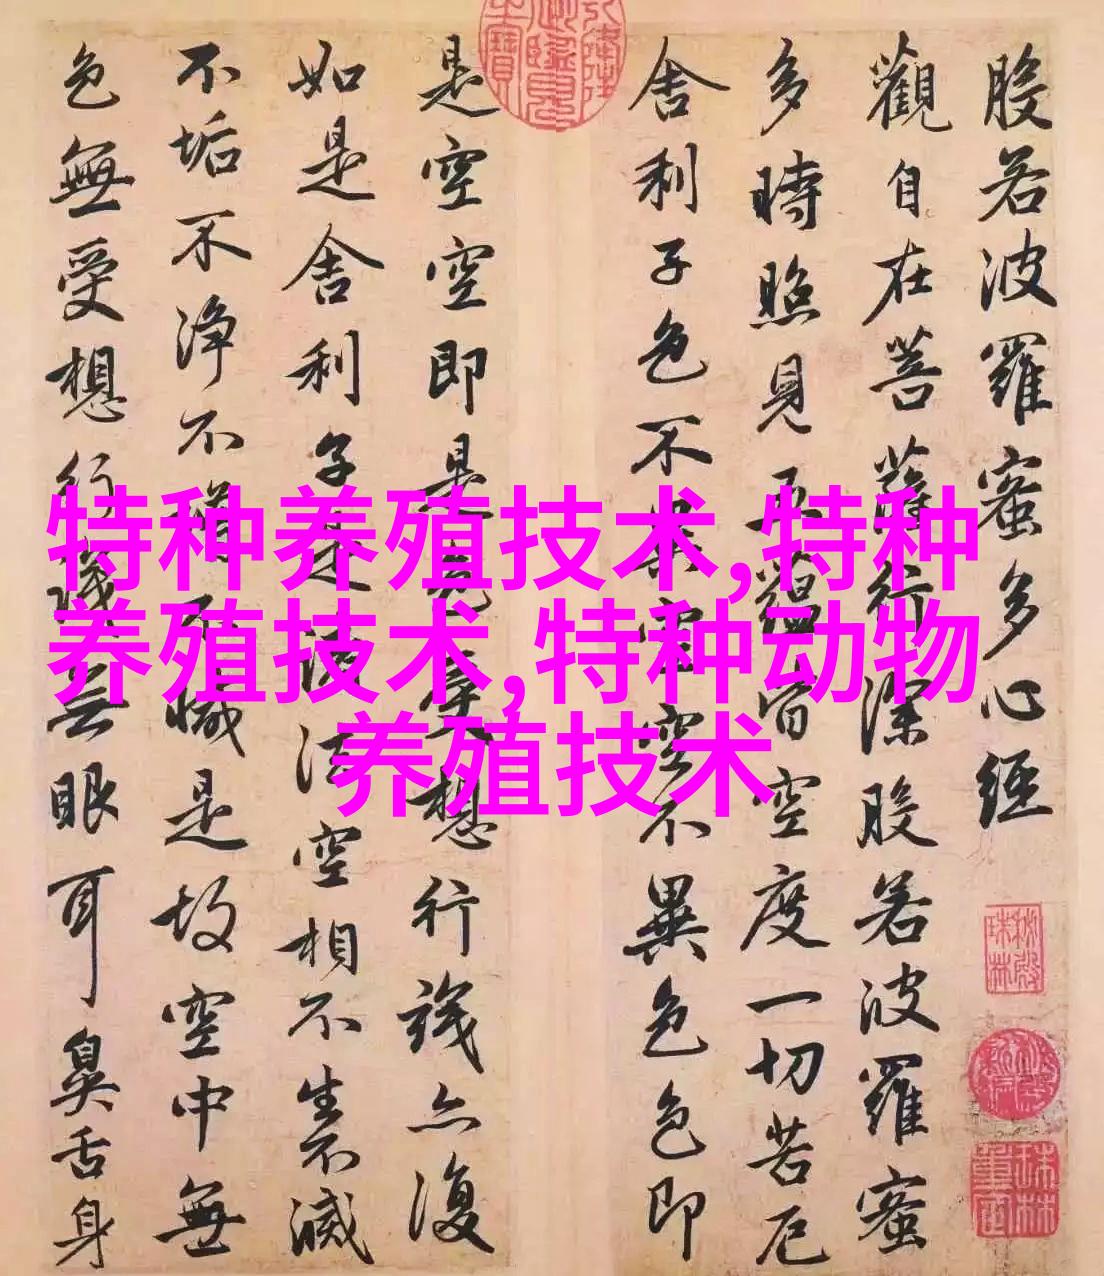 般若波羅蜜多心經
觀自在菩薩行深般若波羅蜜
多時照見五蘊皆空度一切苦厄
舍利子色不異空空不異色色即
是空空即是色受想行識亦復
如是舍利子是諸法空相不生不滅
不垢不淨不增不減是故空中無
色無受想行識无眼耳鼻舌身
特种养殖技术,特种
养殖技术,特种动物
养殖技术